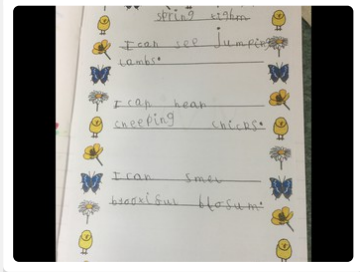 spring
I can see jumping
lambs.
I can hear
cheeping chicks.
I can smel
blosum.